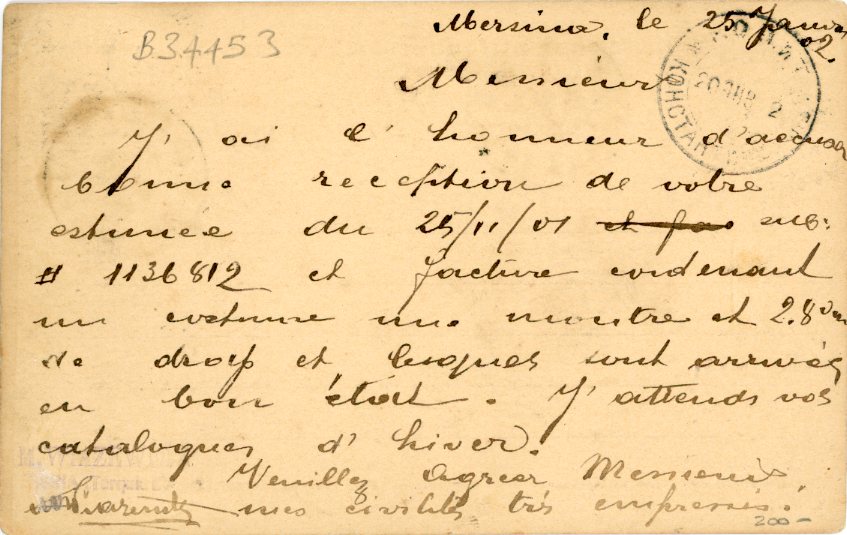 Mersina, le 25 Janv.
02.
B34453
Messieurs
J'ai l'honneur d'accuser
bonne reception de votre
estimée du 25/11/01 sub:
# 1136812 et facture contenant
un costume une montre et 2.80
de drap et lesques sont arrivés
en bon état. J'attends vos
catalogues d'hiver.
Veuillez agreer Messieurs
mes civilités très empressés.
200-